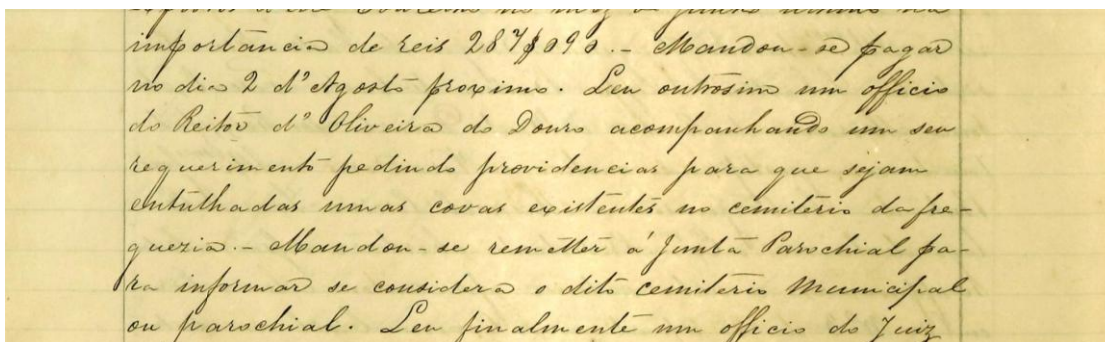 no mez de Junho ultimo na
importancia de reis 287$090. - Mandou-se pagar
no dia 2 d'Agosto proximo. Leu outrosim um officio
do Reitor d'Oliveira do Douro acompanhando um seu
requerimento pedindo providencias para que sejam
entulhadas umas covas existentes no cemiterio da fre-
guezia. - Mandou-se remetter á Junta Parochial pa-
ra informar se considera o dito cemiterio Municipal
ou parochial. Leu finalmente um officio do Juiz